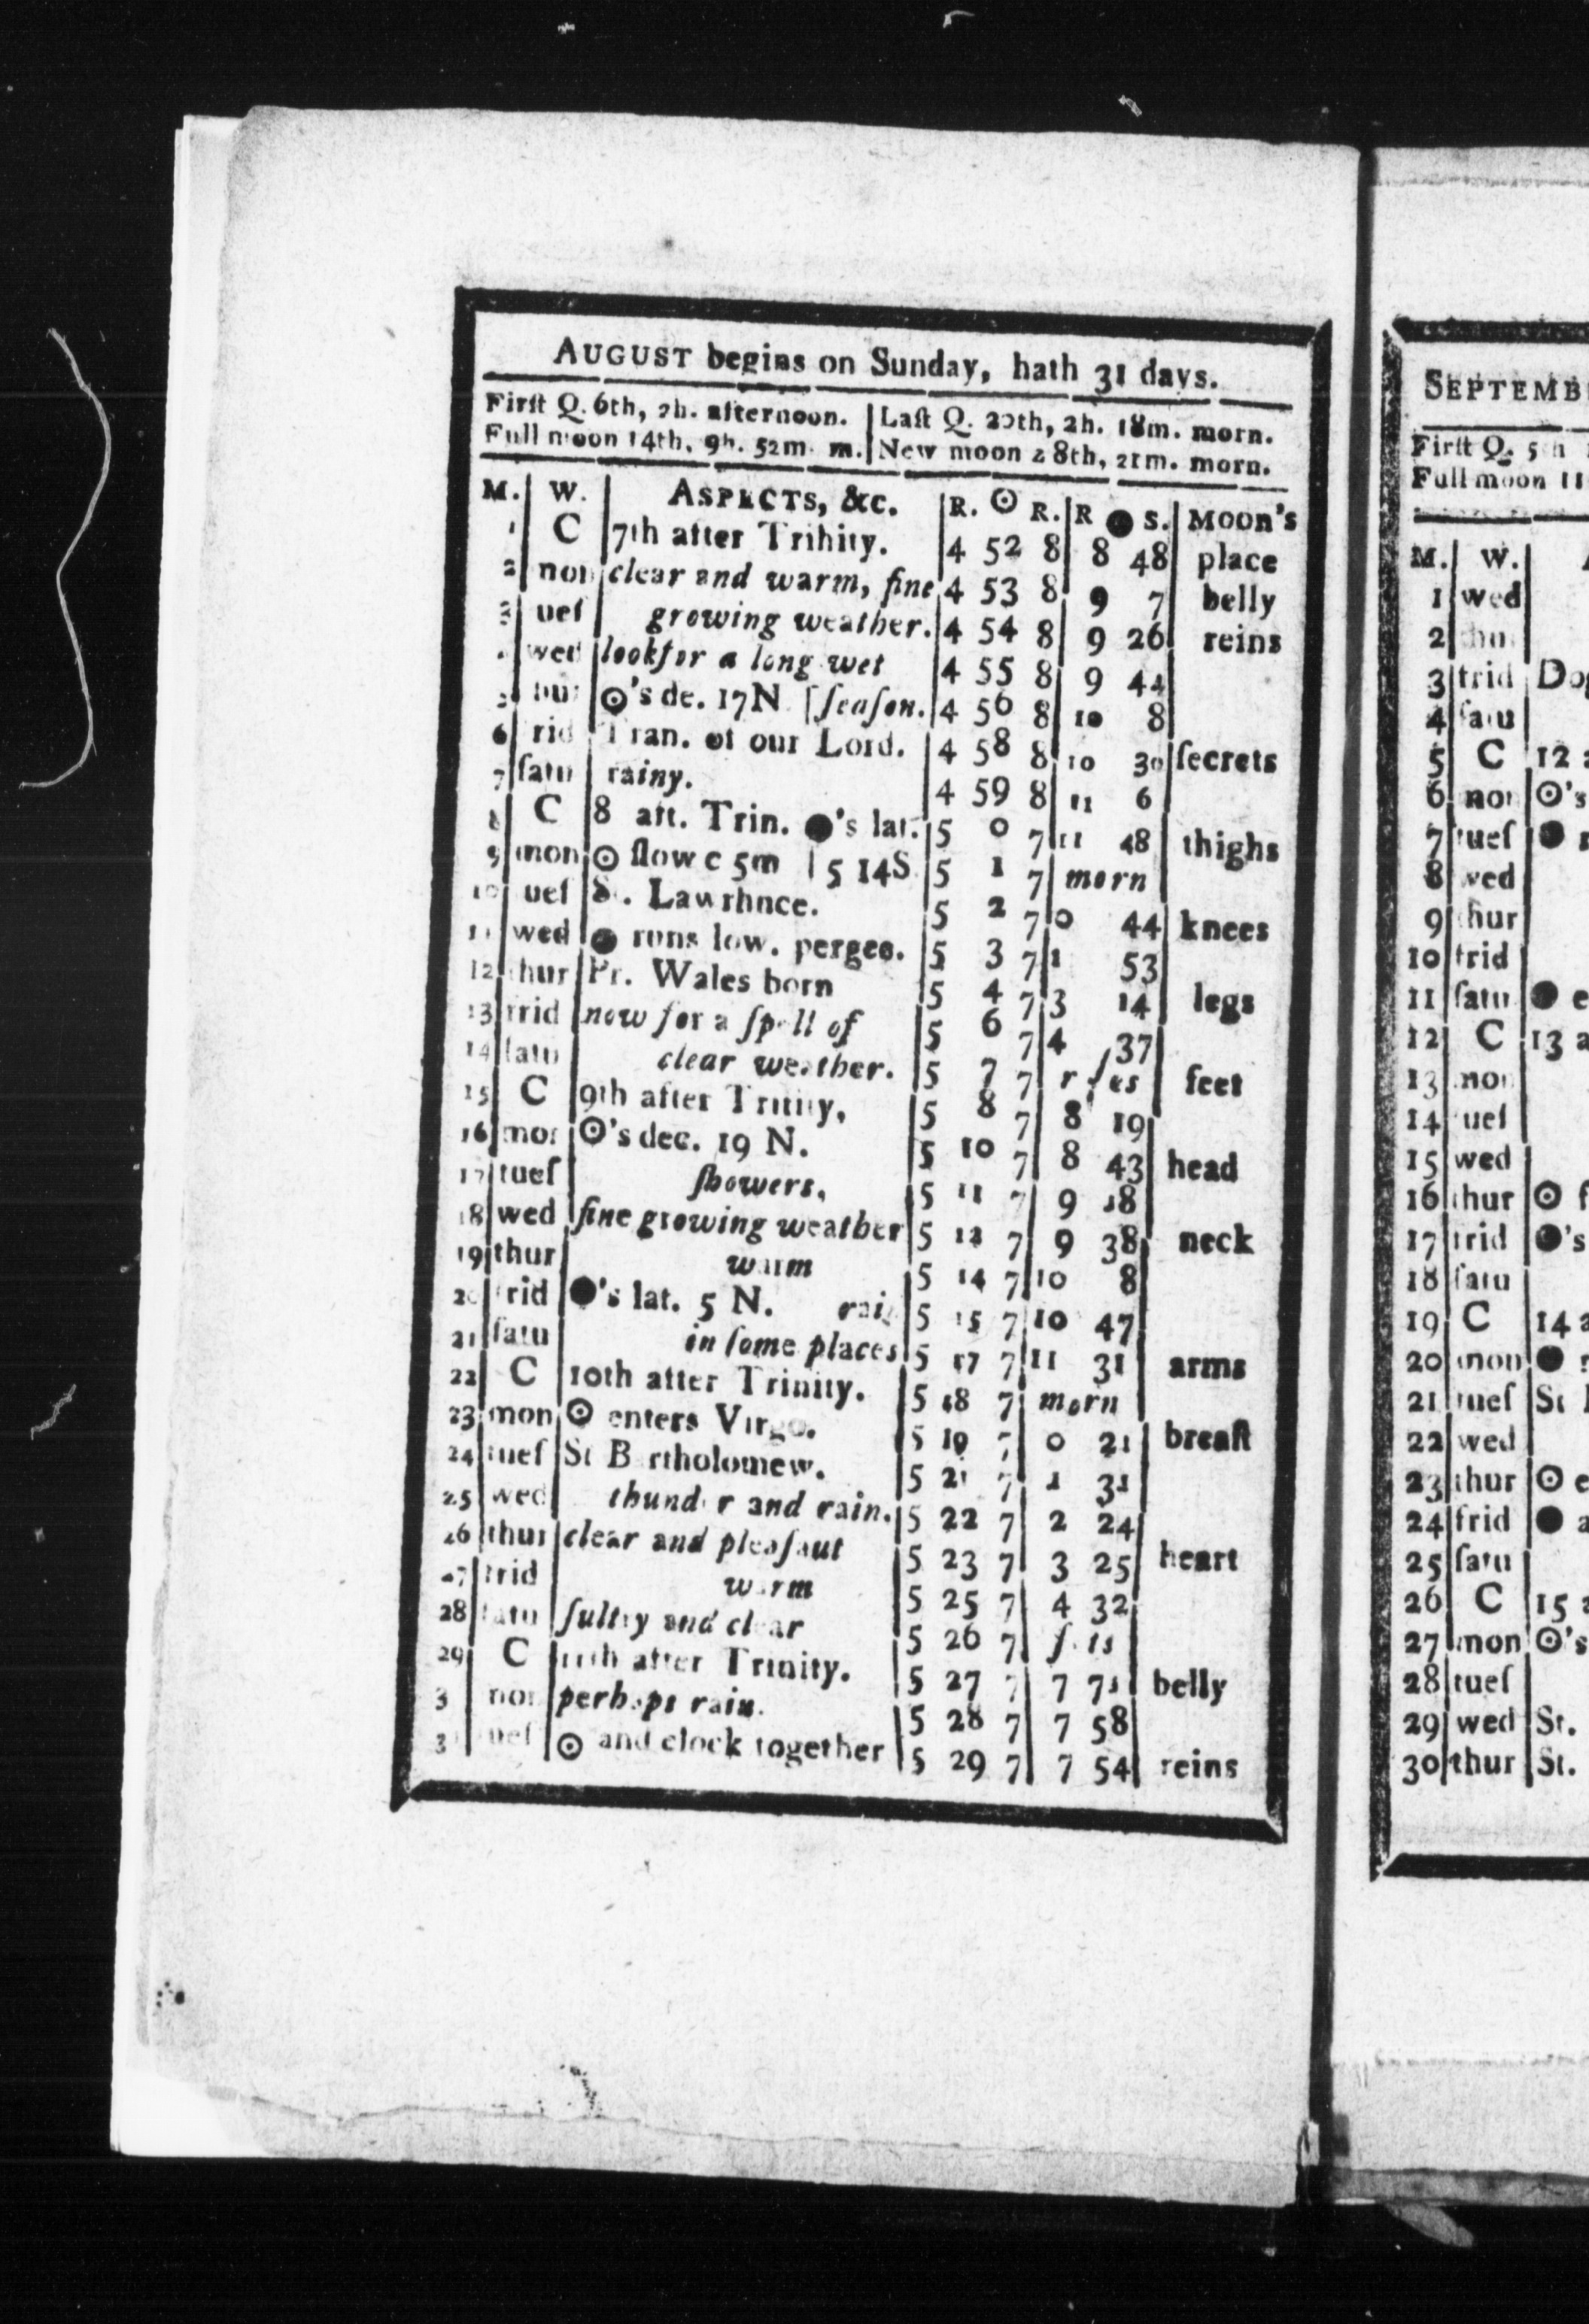 AUGUST begins on Sunday, hath 31 days.
Firſt Q. 6th, 2h. afternoon. | Laſt Q. 20th, 2h. 18m. morn.
Full moon 14th, 9h. 52m. m. | New moon 28th, 21m. morn.
M. | W. | ASPECTS, &c. | R. ☉ R. | R ● S. | MOON'S
1 | C | 7th after Trihity. | 4 52 8 | 8 48 | place
2 | mon | clear and warm, fine | 4 53 8 | 9 7 | belly
3 | ueſ | growing weather. | 4 54 8 | 9 26 | reins
wed | lookfor a long wet | 4 55 8 | 9 44
☉'s de. 17N [ſeaſon. | 4 56 8 | 10 8
6 | rid | Tran. of our Lord. | 4 58 8 | 10 30 | ſecrets
7 | ſatu | rainy. | 4 59 8 | 11 6
8 | C | 8 aft. Trin. ●'s lat. | 5 0 7 | 11 48 | thighs
9 | mon | ☉ ſlow c 5m | 5 14S | 5 1 7 | morn
10 | ueſ | S. Lawrhnce. | 5 2 7 | 0 44 | knees
11 | wed | ● runs low. pergee. | 5 3 7 | 1 53
12 | thur | Pr. Wales born | 5 4 7 | 3 14 | legs
13 | frid | now for a ſpell of | 5 6 7 | 4 37
14 | ſatu | clear weather. | 5 7 7 | riſes | feet
15 | C | 9th after Trinity, | 5 8 7 | 8 19
16 | mon | ☉'s dec. 19 N. | 5 10 7 | 8 43 | head
17 | tueſ | ſhowers, | 5 11 7 | 9 18
18 | wed | fine growing weather | 5 12 7 | 9 38 | neck
19 | thur | warm | 5 14 7 | 10 8
20 | frid | ●'s lat. 5 N. rai | 5 15 7 | 10 47
21 | ſatu | in ſome places | 5 17 7 | 11 31 | arms
22 | C | 10th after Trinity. | 5 18 7 | morn
23 | mon | ☉ enters Virgo. | 5 19 7 | 0 21 | breaſt
24 | tueſ | St Bartholomew. | 5 21 7 | 1 31
25 | wed | thunder and rain. | 5 22 7 | 2 24
26 | thur | clear and pleaſaut | 5 23 7 | 3 25 | heart
27 | frid | warm | 5 25 7 | 4 32
28 | ſatu | ſultry and clear | 5 26 7 | ſets
29 | C | 11th after Trinity. | 5 27 7 | 7 71 | belly
3 | mon | perhaps rain. | 5 28 7 | 7 58
3 | ueſ | ☉ and clock together | 5 29 7 | 7 54 | reins
SEPTEMB
Firſt Q. 5th
Full moon 11
M. | W.
1 | wed
2 | thu
3 | frid | Dog
4 | ſatu
5 | C | 12
6 | mon | ☉'s
7 | tueſ | ●
8 | wed
9 | thur
10 | frid
11 | ſatu | ● e
12 | C | 13 a
13 | mon
14 | tueſ
15 | wed
16 | thur | ☉ f
17 | frid | ●'s
18 | ſatu
19 | C | 14 a
20 | mon | ●
21 | tueſ | St
22 | wed
23 | thur | ☉ e
24 | frid | ● a
25 | ſatu
26 | C | 15 a
27 | mon | ☉'s
28 | tueſ
29 | wed | St.
30 | thur | St.